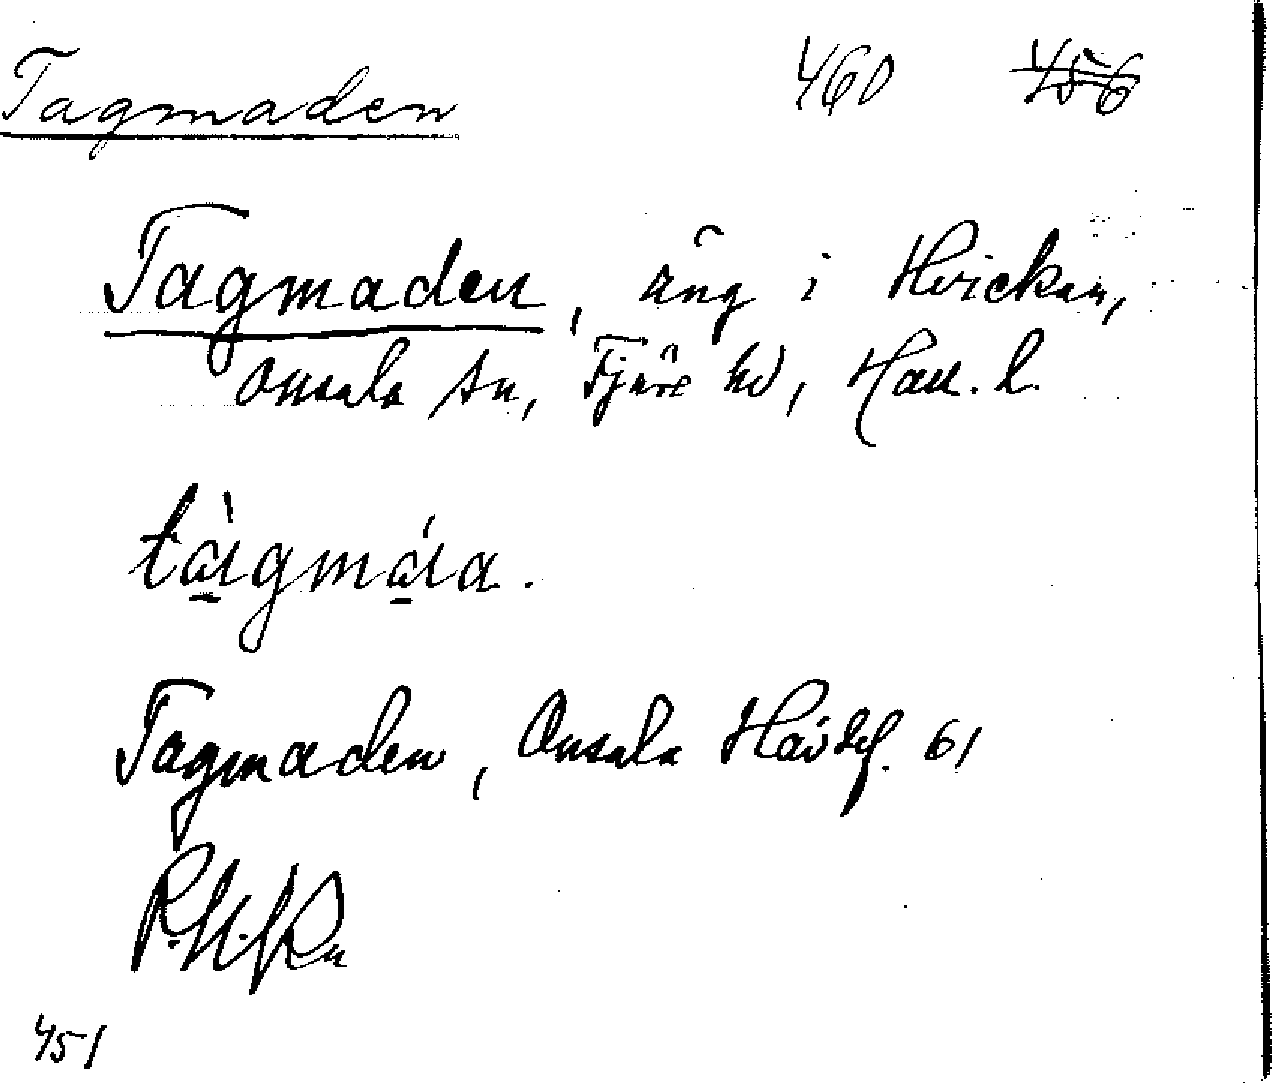 Tagmaden 460 456
Tagmaden, äng i Hvicken,
Onsala sn, Fjäre hd, Hall. l.
tàgmáa.
Tagmaden, Onsala Hävdef. 61
451